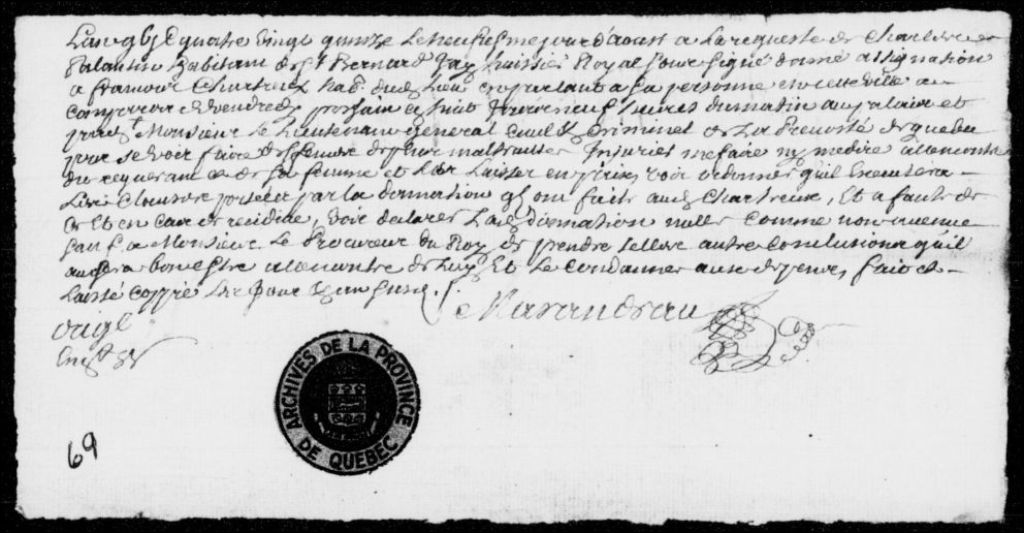 Lan gbj C quatre vingt quinze le neufiesme jour daoust a la requeste de Charles
Valantin habitant de St Bernard Jay huissier Royal soubsigné donné assignation
a francois Chartreux hab. dud. lieu en parlant a sa personne en cette ville a
comparoir vendredy prochain a huit heures du matin au palais et
pard. Monsieur le Lieutenant general Civil & Criminel de la Prevosté de quebec
pour se voir faire deffences de plus maltraiter Injurier mesfaire ny medire allencontre
du requerant et de sa femme et les laisser en paix, voir ordonner quil Executera
la clause portée par la donnation qls ont faite aud. Chartreux, Et a faute de
ce Et en cas de recidive, voir declarer lad. donnation nulle comme non avenue
sauf a Monsieur Le Procureur du Roy de prendre telles autres Conclusions quil
avisera bon estre alencontre de luy Et le condanner aux despens, fait et
laissé coppie les jour & an susd. /.
Marandeau
origl
69
ARCHIVES DE LA PROVINCE DE QUEBEC